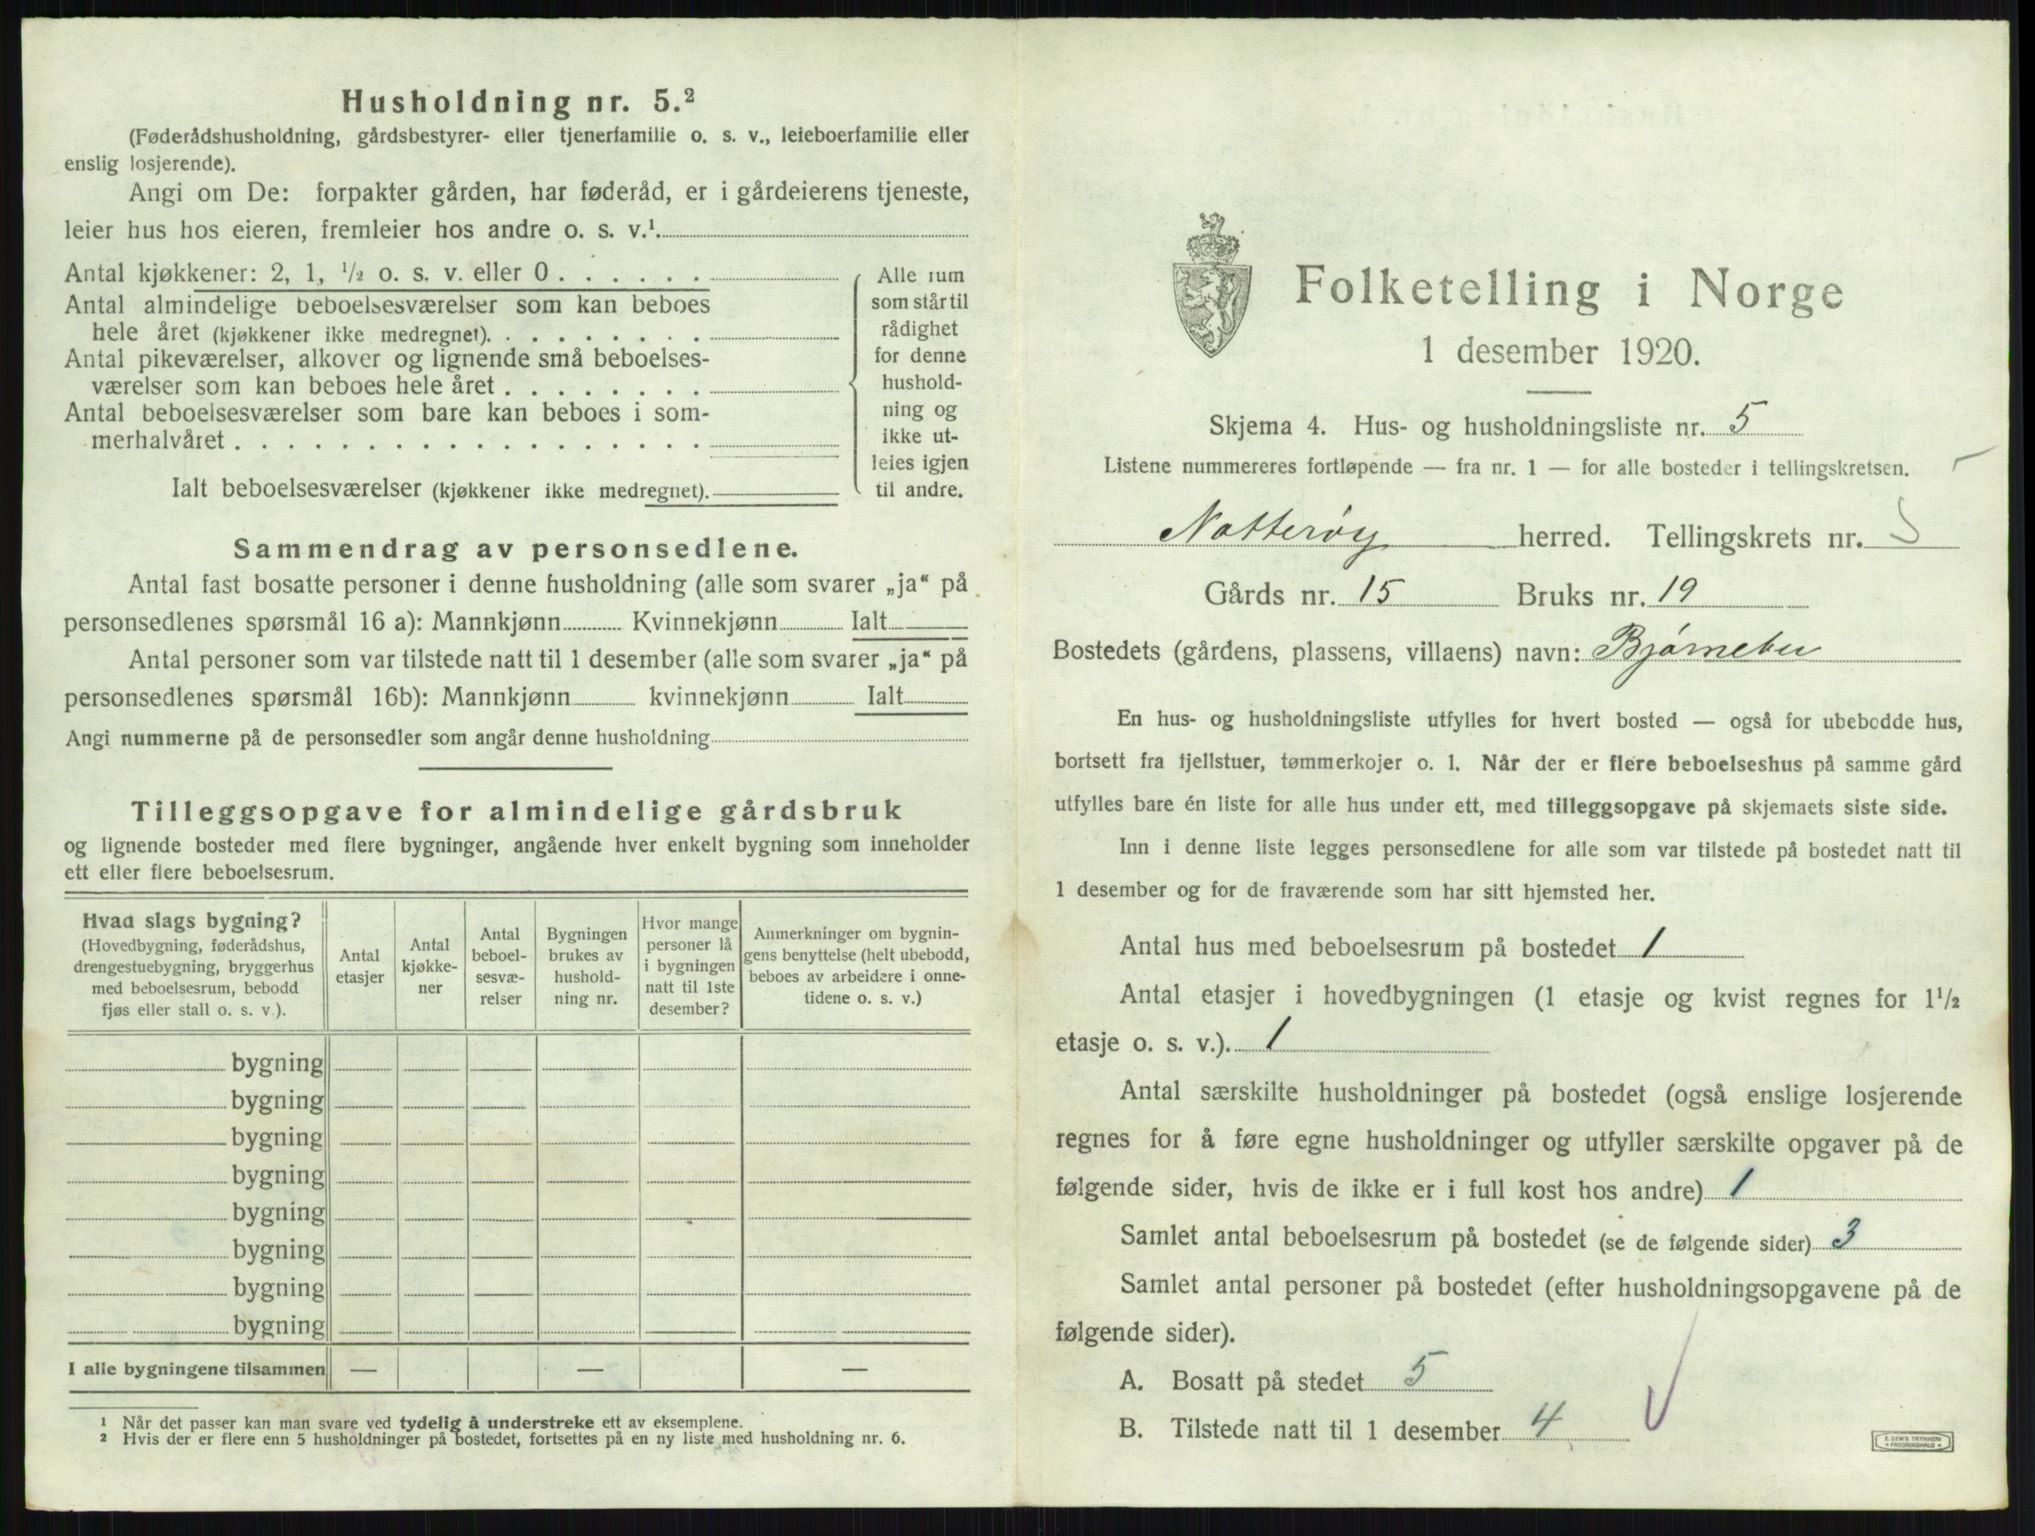 Husholdning nr. 5.²
(Føderådshusholdning, gårdsbestyrer- eller tjenerfamilie o. s. v., leieboerfamilie eller
enslig losjerende).
Angi om De: forpakter gården, har føderåd, er i gårdeierens tjeneste,
leier hus hos eieren, fremleier hos andre o. s. v.¹.
Antal kjøkkener: 2, 1, ½ o. s. v. eller 0 . . . . . .
Antal almindelige beboelsesværelser som kan beboes
hele året (kjøkkener ikke medregnet). . . . . . . . .
Antal pikeværelser, alkover og lignende små beboelses-
værelser som kan beboes hele året . . . . . . . .
Antal beboelsesværelser som bare kan beboes i som-
merhalvåret . . . . . . . . . . . . . . . . . .
Ialt beboelsesværelser (kjøkkener ikke medregnet).
Alle rum
som står til
rådighet
for denne
hushold-
ning og
ikke ut-
leies igjen
til andre.
Sammendrag av personsedlene.
Antal fast bosatte personer i denne husholdning (alle som svarer „ja“ på
personsedlenes spørsmål 16 a): Mannkjønn Kvinnekjønn Ialt
Antal personer som var tilstede natt til 1 desember (alle som svarer „ja“ på
personsedlenes spørsmål 16b): Mannkjønn kvinnekjønn Ialt
Angi nummerne på de personsedler som angår denne husholdning
Tilleggsopgave for almindelige gårdsbruk
og lignende bosteder med flere bygninger, angående hver enkelt bygning som inneholder
ett eller flere beboelsesrum.
Hvad slags bygning?
(Hovedbygning, føderådshus,
drengestuebygning, bryggerhus
med beboelsesrum, bebodd
fjøs eller stall o. s. v.).
Antal
etasjer
Antal
kjøkke-
ner
Antal
beboel-
sesvæ-
relser
Bygningen
brukes av
hushold-
ning nr.
Hvor mange
personer lå
i bygningen
natt til 1ste
desember?
Anmerkninger om bygnin-
gens benyttelse (helt ubebodd,
beboes av arbeidere i onne-
tidene o. s. v.)
bygning
bygning
bygning
bygning
bygning
bygning
bygning
bygning
I alle bygningene tilsammen — — —
¹ Når det passer kan man svare ved tydelig å understreke ett av eksemplene.
² Hvis der er flere enn 5 husholdninger på bostedet, fortsettes på en ny liste med husholdning nr. 6.
Folketelling i Norge
1 desember 1920.
Skjema 4. Hus- og husholdningsliste nr. 5
Listene nummereres fortløpende — fra nr. 1 — for alle bosteder i tellingskretsen.
Nøtterøy herred. Tellingskrets nr. 5
Gårds nr. 15 Bruks nr. 19
Bostedets (gårdens, plassens, villaens) navn: Bjørnebu
En hus- og husholdningsliste utfylles for hvert bosted — også for ubebodde hus,
bortsett fra fjellstuer, tømmerkojer o. l. Når der er flere beboelseshus på samme gård
utfylles bare én liste for alle hus under ett, med tilleggsopgave på skjemaets siste side.
Inn i denne liste legges personsedlene for alle som var tilstede på bostedet natt til
1 desember og for de fraværende som har sitt hjemsted her.
Antal hus med beboelsesrum på bostedet 1
Antal etasjer i hovedbygningen (1 etasje og kvist regnes for 1½
etasje o. s. v.). 1
Antal særskilte husholdninger på bostedet (også enslige losjerende
regnes for å føre egne husholdninger og utfyller særskilte opgaver på de
følgende sider, hvis de ikke er i full kost hos andre) 1
Samlet antal beboelsesrum på bostedet (se de følgende sider) 3
Samlet antal personer på bostedet (efter husholdningsopgavene på de
følgende sider).
A. Bosatt på stedet 5
B. Tilstede natt til 1 desember 4
E. SEM'S TRYKKERI
FREDRIKSHALD